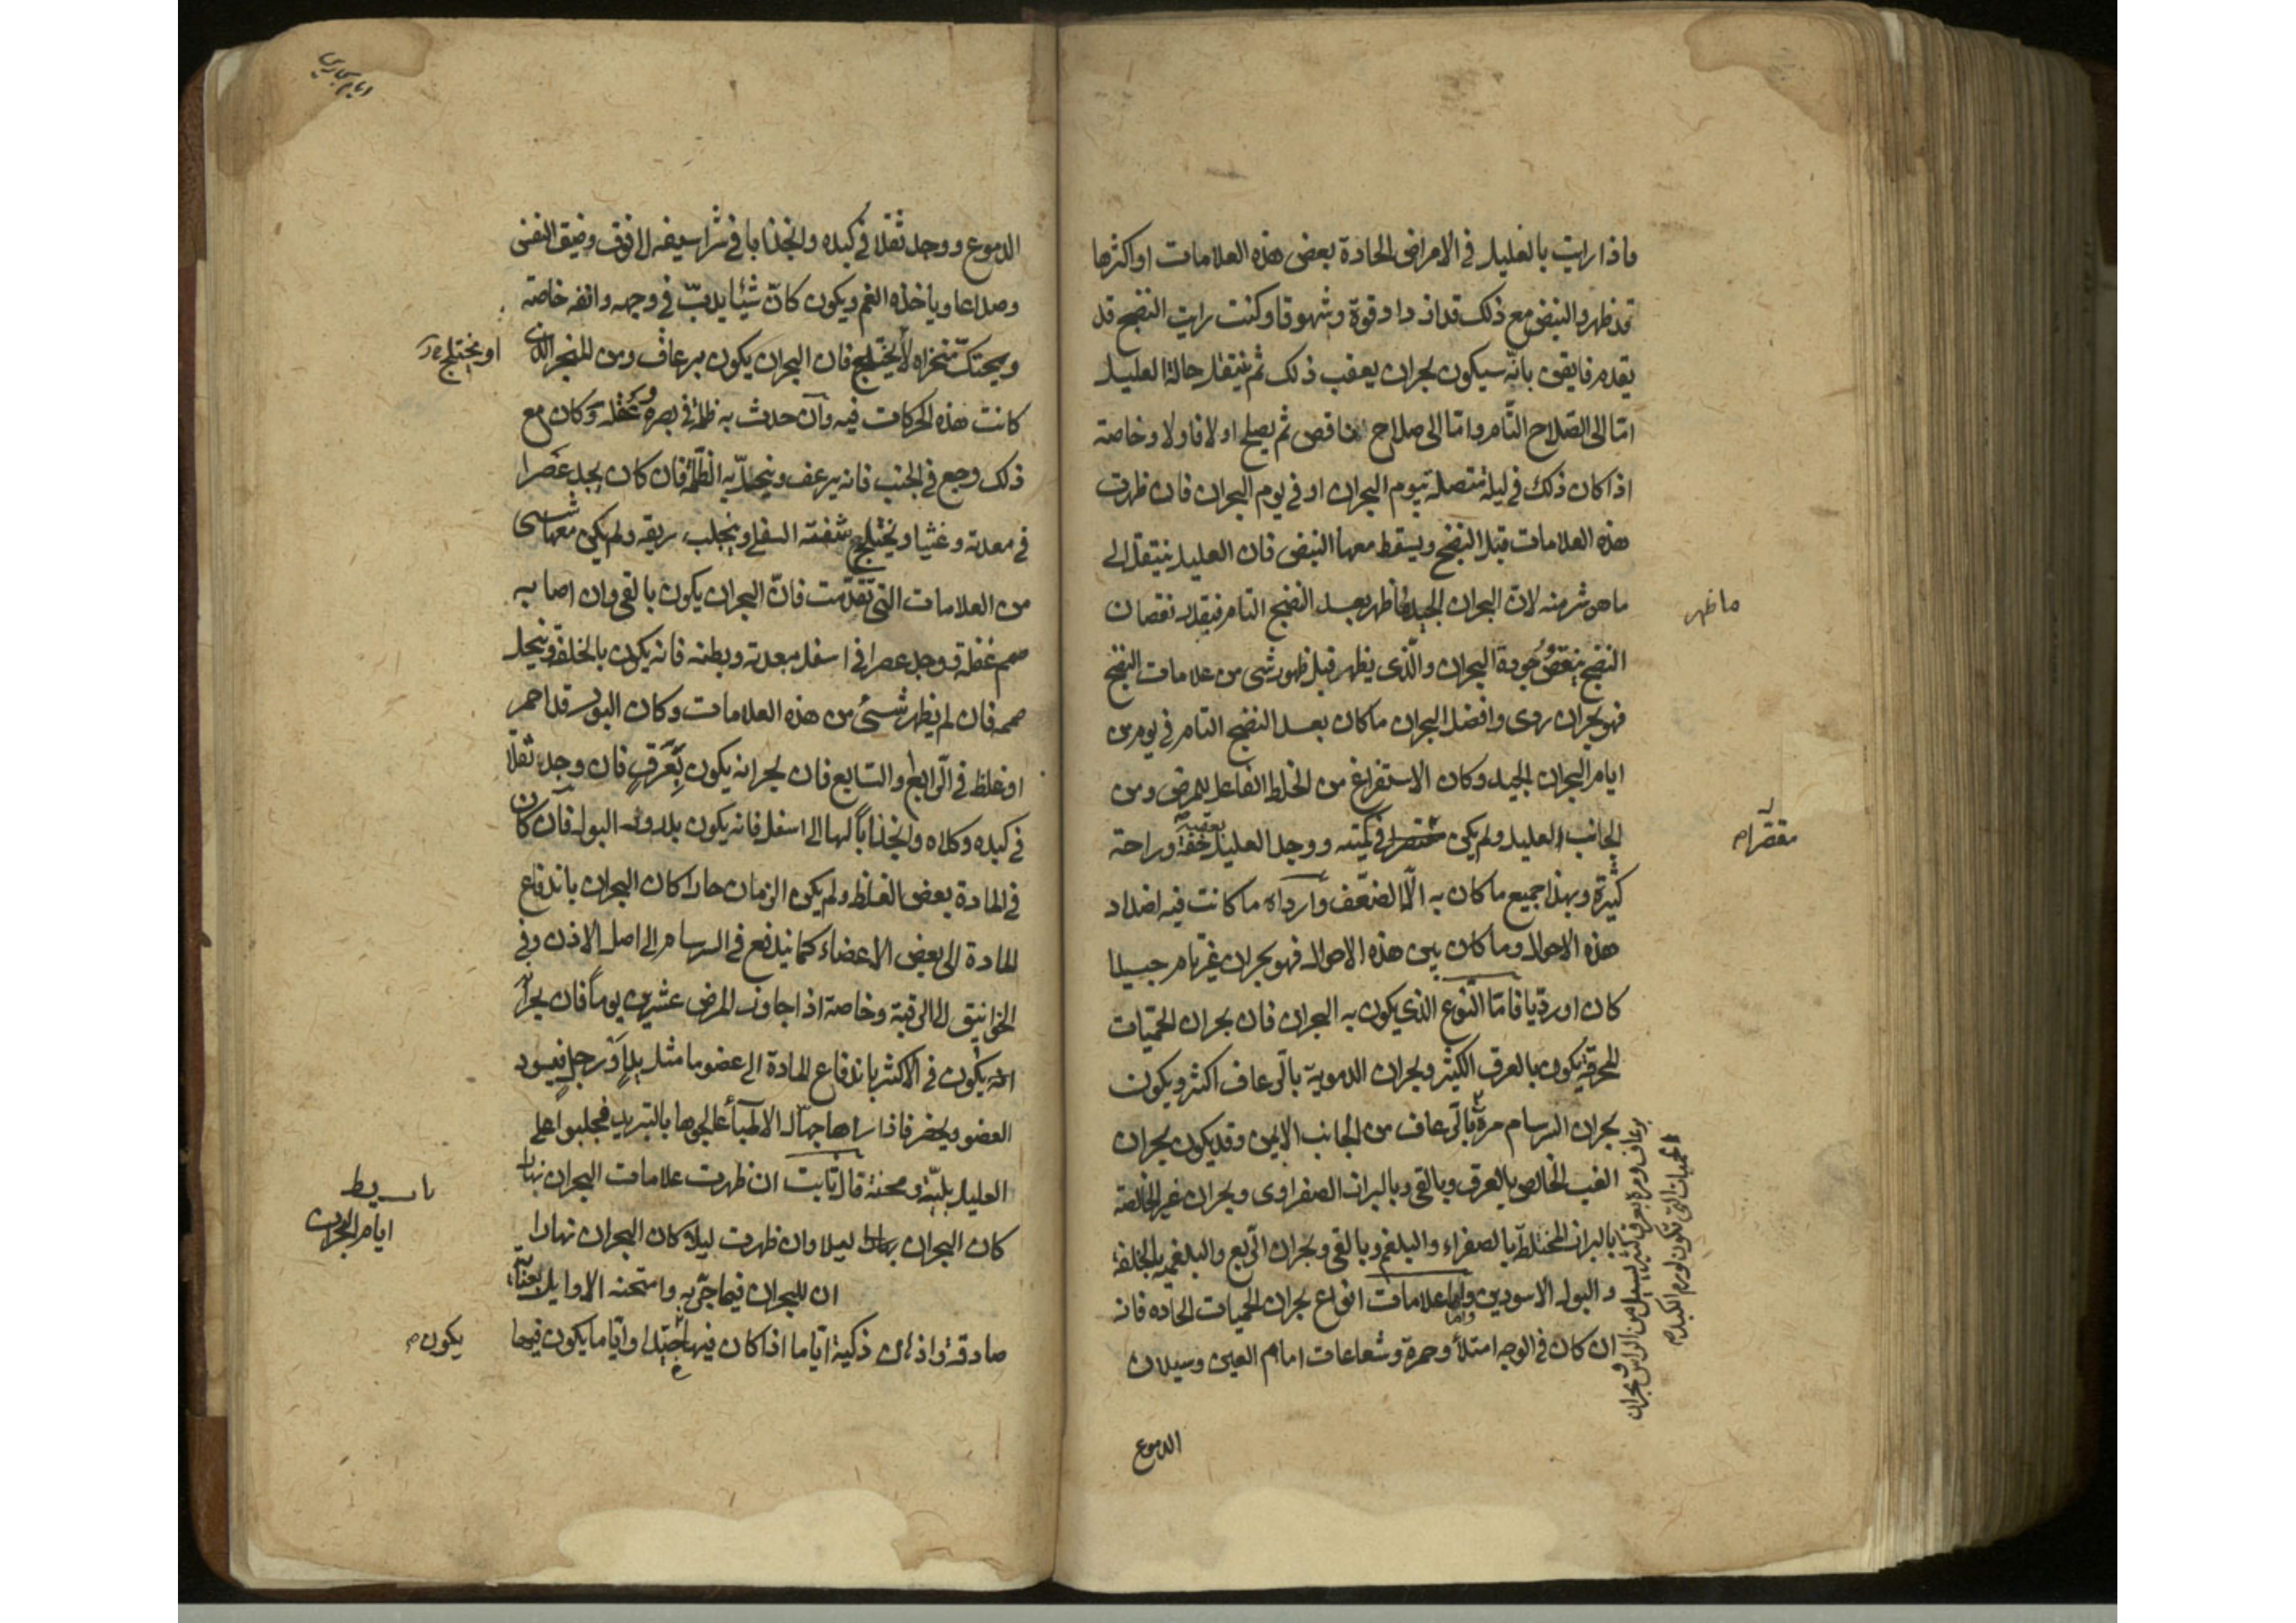 فاذا رايت بالعليل في الامراض الحادة بعض هذه العلامات او اكثرها
قد ظهر والنبض مع ذلك قد ازداد قوة وشهوقا وكنت رايت النضج قد
تقدم فايقن بانه سيكون بحران يعقب ذلك ثم ينتقل حالة العليل
امّا الى الصّلاح التّام وامّا الى صلاح ناقص ثم يصلح اولا فاولا وخاصة
اذا كان ذلك في ليلة متصلة بيوم البحران او في يوم البحران فان ظهرت
هذه العلامات قبل النضج ويسقط معها النبض فان العليل ينتقل الى
ما هو شر منه لان البحران الجيد ظهر بعد النضج التام فبقدر نقصان
ما ظهر
النضج ينقص جودة البحران والّذى يظهر قبل ظهور شى من علامات النضج
فهو بحران ردى وافضل البحران ما كان بعد النضج التام في يوم من
ايام البحران الجيد وكان الاستفراغ من الخلط الفاعل للمرض ومن
الجانب العليل ولم يكن في كميته ووجد العليل بعقبه خفة وراحة
مقصرا م
كثيرة وبهذا جميع ما كان به الّا الضعف وارداه ما كانت فيه اضداد
هذه الاحوال وما كان بين هذه الاحوال فهو بحران غير تام جيدا
كان او رديا فامّا النّوع الذي يكون به البحران فان بحران الحمّيات
المحرقة يكون بالعرق الكثير وبحران الدموية بالرّعاف اكثر ويكون
بحران السرسام مرة بالرّعاف من الجانب الايمن وقد يكون بحران
الغب الخالص بالعرق وبالقى وبالبراز الصفراوى وبحران غير الخالصة
بالبراز المختلط بالصفراء والبلغم وبالقى وبحران الرّبع والبلغمية بالخلفة
والبول الاسودين واما علامات انواع بحران الحميات الحاده فانه
ان كان في الوجه امتلأ وحمرة وشعاعات امام العين وسيلان
برعاف ومرة بعرق كثير يسيل من الراس وبحران
الحميات التى تكون لورم الكبد م
الدموع
الدموع ووجد ثقلا في كبده وانجذابا في شراسيفه الى فوق وضيق النفس
وصداعا وياخذه الغم ويكون كانّ شيئا يدبّ في وجهه وانفه خاصة
ويحتكّ منخراه لا يختلج فان البحران يكون برعاف ومن المنخر الذى
او يختلج
كانت هذه الحركات فيه وان حدث به ظلمة في بصره وعقله وكان مع
ذلك وجع في الجنب فانه يرعف وينحلّ به الظّلمة فان كان يجد عصرا
في معدته وغثيا ويختلج شفته السفلى وينجلب ريقه ولم يكن معها شى
من العلامات التى تقدّمت فانّ البحران يكون بالقى وان اصابه
صمم غفلة ووجد عصرا في اسفل معدته وبطنه فانه يكون بالخلفة وينحل
صممه فان لم يظهر شىء من هذه العلامات وكان البول قد احمر
او غلظ في الرّابع والسّابع فان بحرانه يكون بعرق فان وجد ثقلا
في كبده وكلاه وانجذابا لها الى اسفل فانه يكون بادرار البول فان كان
في المادة بعض الغلظ ولم يكن الزمان حارا كان البحران باندفاع
المادة الى بعض الاعضاء كما يندفع في السرسام الى اصل الاذن وفي
الخوانيق الى الرقبة وخاصة اذا جاوز المرض عشرين يوما فان بحرانه
يكون في الاكثر باندفاع المادة الى عضو ما مثل يد او رجل فيسود
العضو ويخضر فاذا راها جهّال الاطباء عالجوها بالتبريد فجلبوا على
العليل بليّة ومحنة قال ثابت ان ظهرت علامات البحران نهارا
كان البحران ليلا وان ظهرت ليلا كان البحران نهارا
ايام البحران
ان للبحران فيما جرّبه وامتحنه الاوايل بعناية
صادقة واذهان ذكية ايّاما اذا كان فيها وايّاما يكون فيها
يكون م